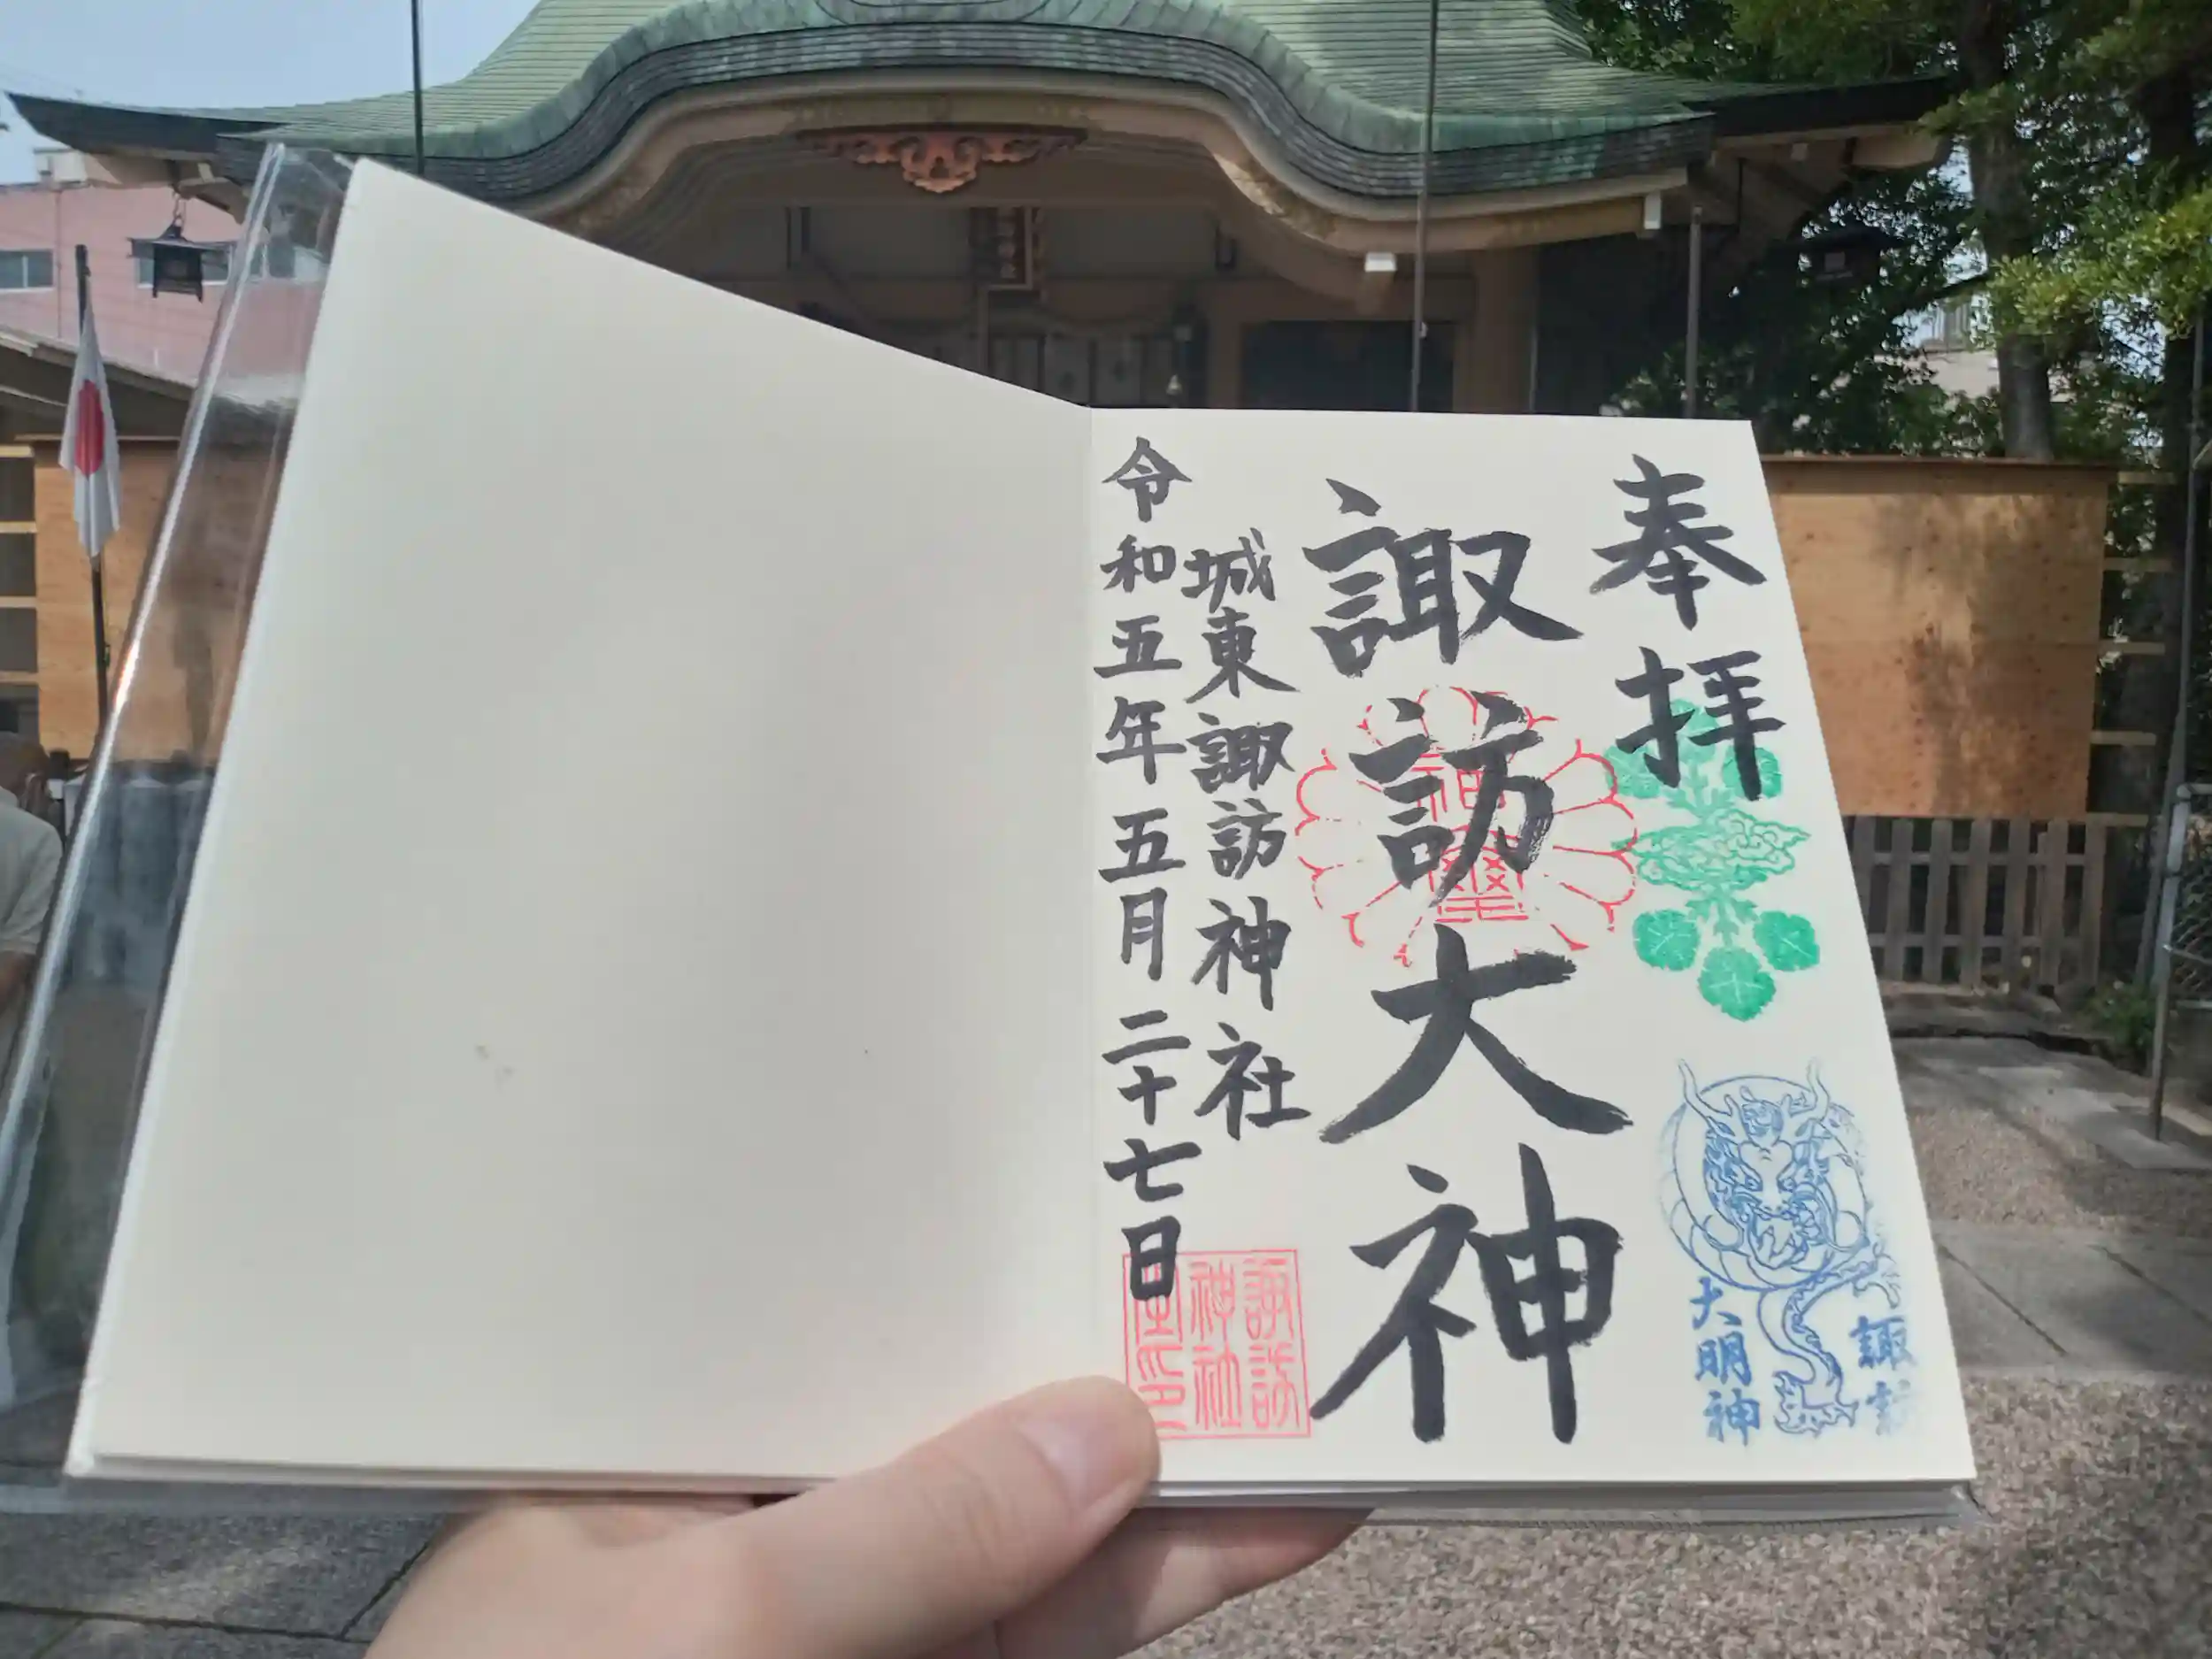 奉拝
諏訪大神
城東諏訪神社
令和五年五月二十七日
神璽
諏訪
大明神
諏訪
神社